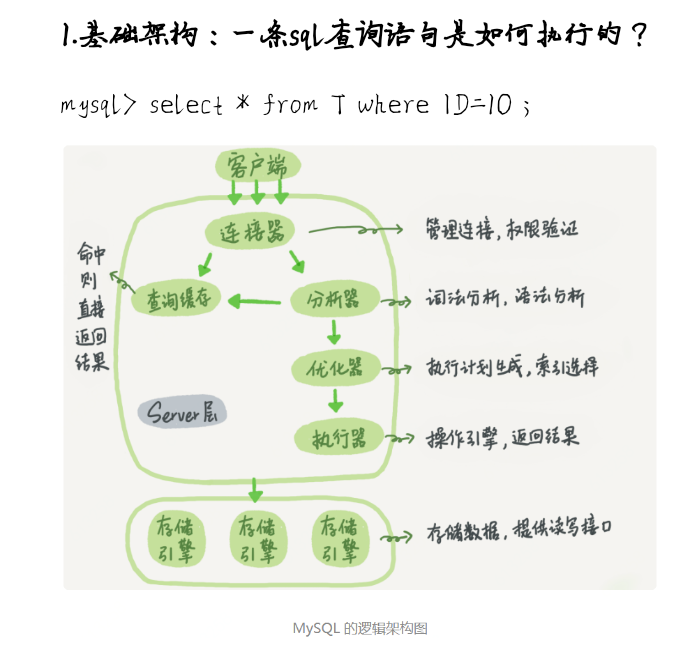 1.基础架构：一条sql查询语句是如何执行的？
mysql> select * from T where ID=10 ;
客户端
连接器
管理连接,权限验证
命中
则
直接
返回
结果
查询缓存
分析器
词法分析,语法分析
优化器
执行计划生成,索引选择
Server层
执行器
操作引擎,返回结果
存储
引擎
存储
引擎
存储
引擎
存储数据,提供读写接口
MySQL 的逻辑架构图